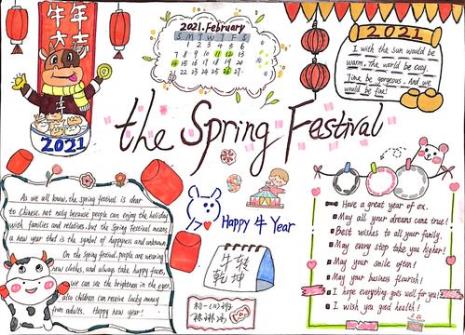 牛年
大吉
2021
2021.February
S M T W T F S
1 2 3 4 5 6
7 8 9 10 11 12 13
2021
I wish the sun would be
warm, The world be easy,
Time be gorgeous. And we
would be fine!
the Spring Festival
As we all know, the spring festival is dear
to Chinese, not only because people can enjoy the holiday
with families and relatives, but the Spring Festival means
a new year that is the symbol of happyness and unknown.
On the Spring festival, people are wearing
new clothes, and always take happy faces,
we can see the brightness in the eyes,
also children can receive lucky money
from adults. Happy new year!
Happy 牛 Year
牛转
乾坤
Have a great year of ox.
May all your dreams come true!
Best wishes to all your family.
May every step take you higher!
May your smile often!
May your business flourish!
I hope everything goes well for you!
I wish you good health!